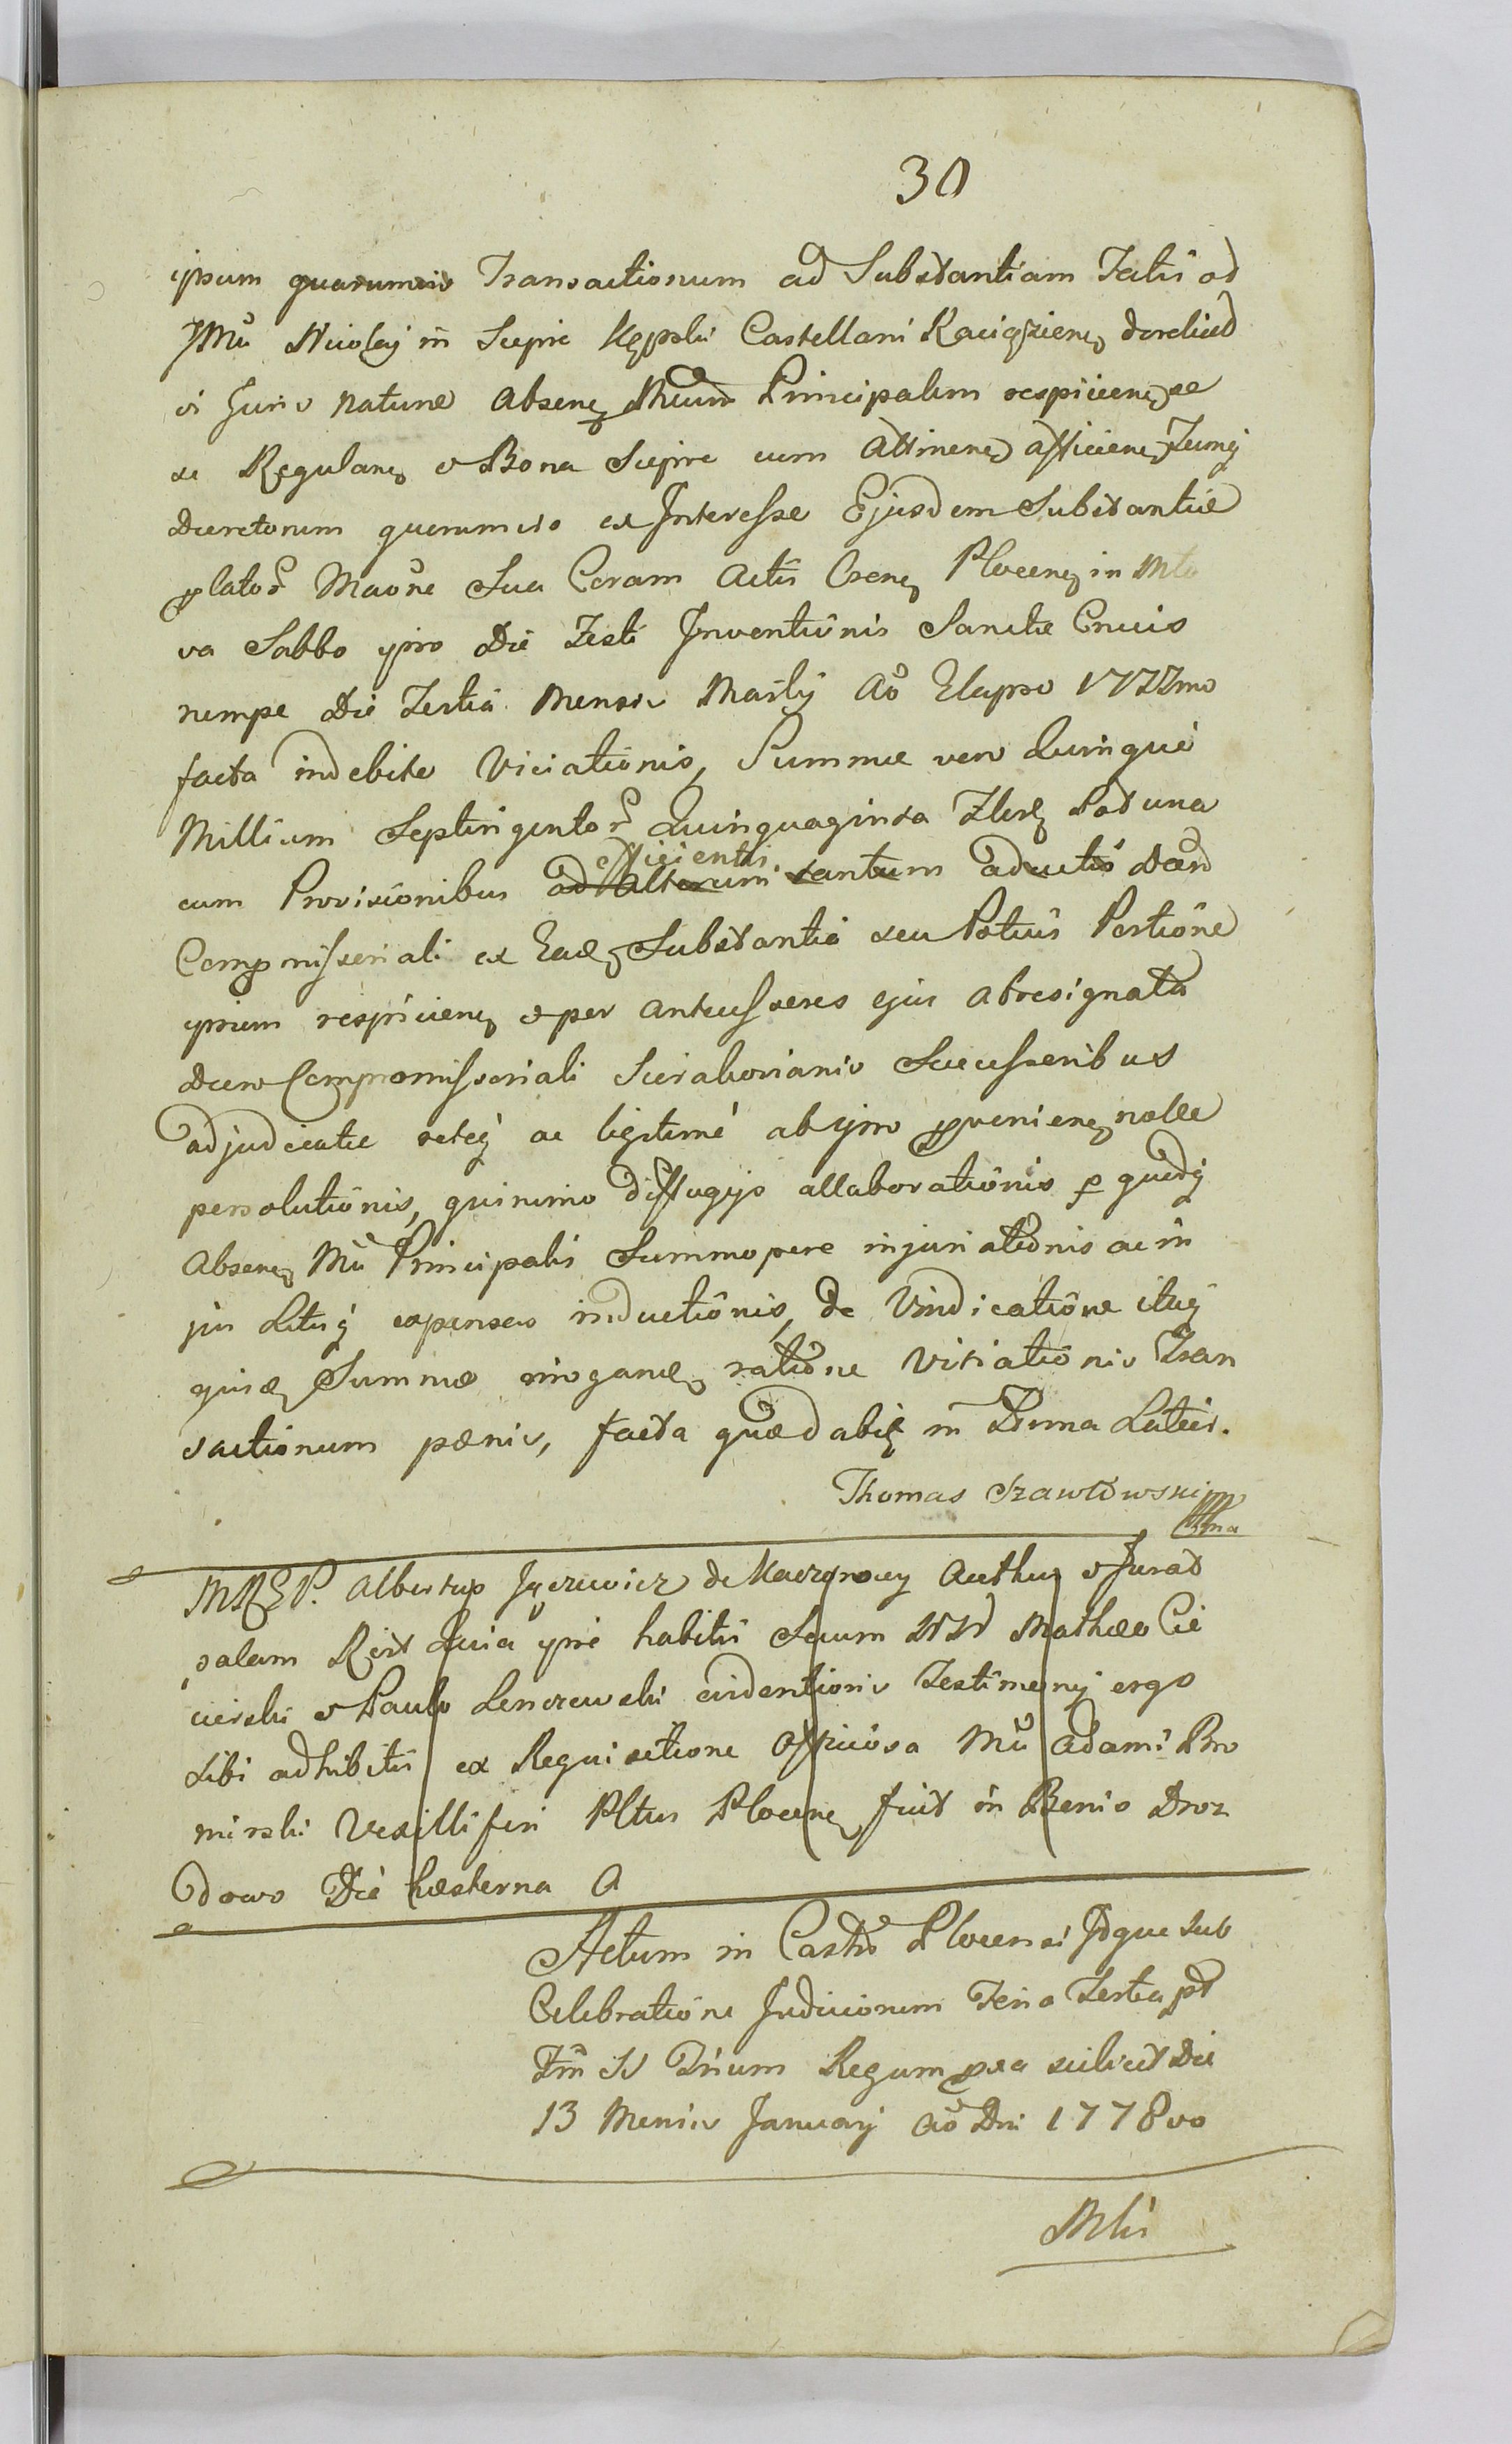 30
ipsum quarumvis Transactionum ad Substantiam Fatis od
JMu Nicolaj in Sciepie Kępski Castellani Raciązienę derelicd
vi Juris nature Absenę Mium Principalem respicienę se
se Regulanę & Bona Sciepie cum Attinenę afficienę Tumą
Decretorum querumvis ex Interesse Ejusdem Substantiæ
platoꝝ Maoñe Sua Coram Actis Crenę Plocenę in Mto
va Sabbo ipso Die Festi Inventiônis Sanctæ Crucis
nempe Die Tertia Mensis Maÿ Aô Elapso 1777mo
facta indebite Viciationis, Summæ vero Quinque
Millium Septingentoꝝ Quinquaginta Flor Pol una
efficienti
cum Provisionibus ad Alterum tantum aductis Decrd
Compmissoriali ex Eadę Substantiâ seu Potius Portiône
ipsum respicienę & per Antecessores ejus Abresignata
Decro Compromissoriali Sieraborianis Successoribus
adjudicatæ reteq ac legitime ab ipso pvenienę nolle
persolutiônis, quinimo diffugijs allaborationis p quidq
Absenę Mu Principalis Summopere injuriatiônis ac in
jus Litisq expensas inductiônis, de Vindicatiône itaq
ipsię Summæ irrogandę, ratiône Vitiationis Tran
sactionum pænis, facta quæd abię in Tĩrma Latius.
Thomas Szawłowski mp
MNEP. Albertus Jączewicz de Kaczorowy Authus & Jurad
palam Rect Quia ipse habitis Secum NN Mathæo Cie
cierski & Paulo Lenczewski evidentioris Testimonij ergo
sibi adhibitis ex Requisitione Officiosa Mu Adami Bro
mirski Vexilliferi Pltus Plocenę fuit in Bonis Droz
dowo Die hæsterna A
Actum in Castro Plocensi Idque sub
Celebratiône Judiciorum Feria Tertia pt
Fm S Trium Regum pxa scilicet Die
13 Mensis Januarij Aô Dni 1778vo
Mlis